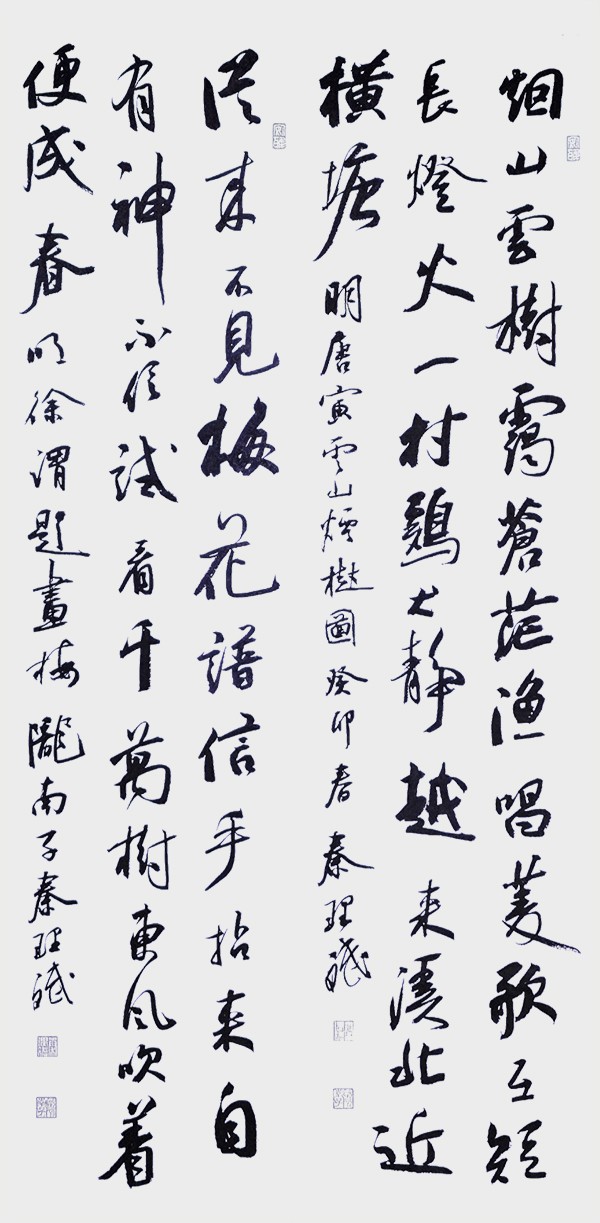 烟山雲樹靄蒼茫漁唱菱歌互短
長燈火一村鷄犬静越来溪北近
横塘明唐寅雲山煙樹圖癸卯春秦理斌
從来不見梅花譜信手拈来自
有神不信試看千萬樹東風吹着
便成春明徐渭題畫梅隴南子秦理斌